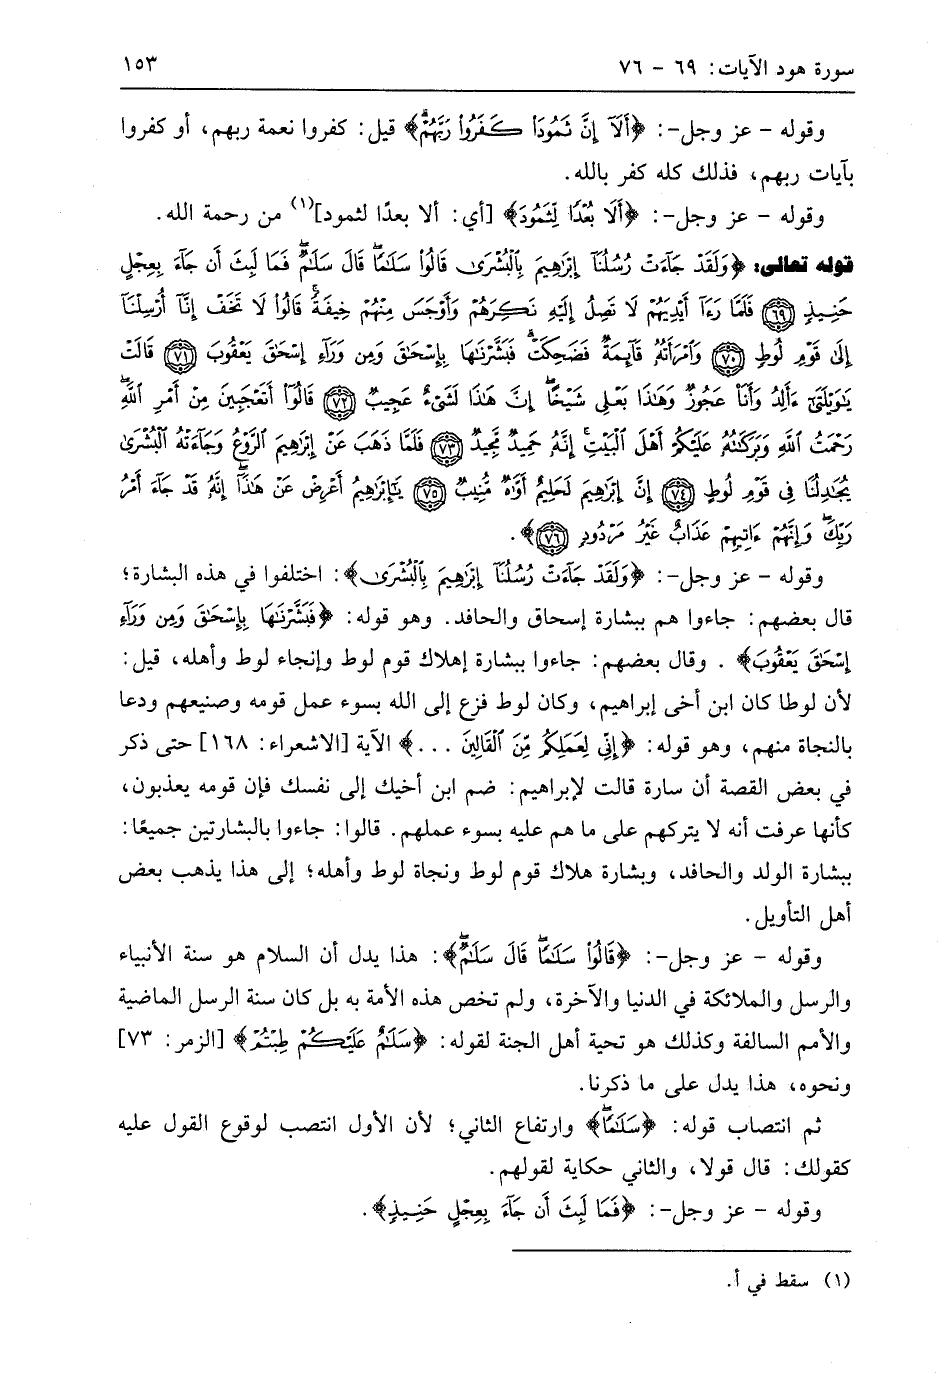 سورة هود الآيات: ٦٩ – ٧٦ ١٥٣
وقوله – عز وجل–: ﴿أَلَآ إِنَّ ثَمُودَا۟ كَفَرُوا۟ رَبَّهُمْ﴾ قيل: كفروا نعمة ربهم، أو كفروا
بآيات ربهم، فذلك كله كفر بالله.
وقوله – عز وجل–: ﴿أَلَا بُعْدًا لِّثَمُودَ﴾ [أي: ألا بعدًا لثمود](١) من رحمة الله.
قوله تعالى: ﴿وَلَقَدْ جَآءَتْ رُسُلُنَآ إِبْرَٰهِيمَ بِٱلْبُشْرَىٰ قَالُوا۟ سَلَٰمًا ۖ قَالَ سَلَٰمٌ ۖ فَمَا لَبِثَ أَن جَآءَ بِعِجْلٍ
حَنِيذٍ ﴿٦٩﴾ فَلَمَّا رَءَآ أَيْدِيَهُمْ لَا تَصِلُ إِلَيْهِ نَكِرَهُمْ وَأَوْجَسَ مِنْهُمْ خِيفَةً ۚ قَالُوا۟ لَا تَخَفْ إِنَّآ أُرْسِلْنَآ
إِلَىٰ قَوْمِ لُوطٍ ﴿٧٠﴾ وَٱمْرَأَتُهُۥ قَآئِمَةٌ فَضَحِكَتْ فَبَشَّرْنَٰهَا بِإِسْحَٰقَ وَمِن وَرَآءِ إِسْحَٰقَ يَعْقُوبَ ﴿٧١﴾ قَالَتْ
يَٰوَيْلَتَىٰٓ ءَأَلِدُ وَأَنَا۠ عَجُوزٌ وَهَٰذَا بَعْلِى شَيْخًا ۖ إِنَّ هَٰذَا لَشَىْءٌ عَجِيبٌ ﴿٧٢﴾ قَالُوٓا۟ أَتَعْجَبِينَ مِنْ أَمْرِ ٱللَّهِ ۖ
رَحْمَتُ ٱللَّهِ وَبَرَكَٰتُهُۥ عَلَيْكُمْ أَهْلَ ٱلْبَيْتِ ۚ إِنَّهُۥ حَمِيدٌ مَّجِيدٌ ﴿٧٣﴾ فَلَمَّا ذَهَبَ عَنْ إِبْرَٰهِيمَ ٱلرَّوْعُ وَجَآءَتْهُ ٱلْبُشْرَىٰ
يُجَٰدِلُنَا فِى قَوْمِ لُوطٍ ﴿٧٤﴾ إِنَّ إِبْرَٰهِيمَ لَحَلِيمٌ أَوَّٰهٌ مُّنِيبٌ ﴿٧٥﴾ يَٰٓإِبْرَٰهِيمُ أَعْرِضْ عَنْ هَٰذَآ ۖ إِنَّهُۥ قَدْ جَآءَ أَمْرُ
رَبِّكَ ۖ وَإِنَّهُمْ ءَاتِيهِمْ عَذَابٌ غَيْرُ مَرْدُودٍ ﴿٧٦﴾﴾.
وقوله – عز وجل–: ﴿وَلَقَدْ جَآءَتْ رُسُلُنَآ إِبْرَٰهِيمَ بِٱلْبُشْرَىٰ﴾: اختلفوا في هذه البشارة؛
قال بعضهم: جاءوا هم ببشارة إسحاق والحافد. وهو قوله: ﴿فَبَشَّرْنَٰهَا بِإِسْحَٰقَ وَمِن وَرَآءِ
إِسْحَٰقَ يَعْقُوبَ﴾ . وقال بعضهم: جاءوا ببشارة إهلاك قوم لوط وإنجاء لوط وأهله، قيل:
لأن لوطا كان ابن أخى إبراهيم، وكان لوط فزع إلى الله بسوء عمل قومه وصنيعهم ودعا
بالنجاة منهم، وهو قوله: ﴿إِنِّى لِعَمَلِكُم مِّنَ ٱلْقَالِينَ ...﴾ الآية [الاشعراء: ١٦٨] حتى ذكر
في بعض القصة أن سارة قالت لإبراهيم: ضم ابن أخيك إلى نفسك فإن قومه يعذبون،
كأنها عرفت أنه لا يتركهم على ما هم عليه بسوء عملهم. قالوا: جاءوا بالبشارتين جميعًا:
ببشارة الولد والحافد، وبشارة هلاك قوم لوط ونجاة لوط وأهله؛ إلى هذا يذهب بعض
أهل التأويل.
وقوله – عز وجل–: ﴿قَالُوا۟ سَلَٰمًا ۖ قَالَ سَلَٰمٌ ۖ﴾: هذا يدل أن السلام هو سنة الأنبياء
والرسل والملائكة في الدنيا والآخرة، ولم تخص هذه الأمة به بل كان سنة الرسل الماضية
والأمم السالفة وكذلك هو تحية أهل الجنة لقوله: ﴿سَلَٰمٌ عَلَيْكُمْ طِبْتُمْ﴾ [الزمر: ٧٣]
ونحوه، هذا يدل على ما ذكرنا.
ثم انتصاب قوله: ﴿سَلَٰمًا ۖ﴾ وارتفاع الثاني؛ لأن الأول انتصب لوقوع القول عليه
كقولك: قال قولا، والثاني حكاية لقولهم.
وقوله – عز وجل–: ﴿فَمَا لَبِثَ أَن جَآءَ بِعِجْلٍ حَنِيذٍ﴾.
(١) سقط في أ.